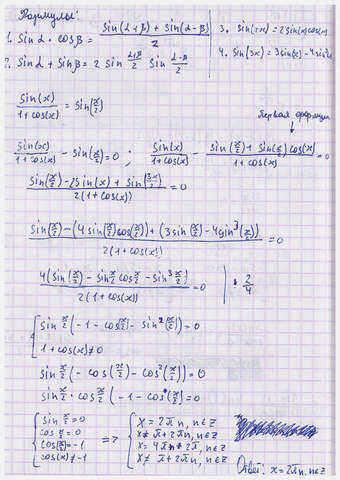 Формулы:
1. Sin α · cos β = (sin(α+β) + sin(α-β))/2
3. sin(2x) = 2 sin(x) cos(x)
2. Sin α + Sin β = 2 sin (α+β)/2 Sin (α-β)/2
4. Sin(3x) = 3 sin(x) - 4 sin³x
sin(x)/(1+cos(x)) = sin(x/2)
Первая формула
sin(x)/(1+cos(x)) - sin(x/2) = 0 ; sin(x)/(1+cos(x)) - (sin(x/2) + sin(x/2) cos(x))/(1+cos(x)) = 0
(sin(x/2) - 2 sin(x) + sin(3x/2))/(2(1+cos(x))) = 0
(sin(x/2) - (4 sin(x/2) cos(x/2)) + (3 sin(x/2) - 4 sin³(x/2)))/(2(1+cos(x))) = 0
4(sin(x/2) - sin x/2 cos x/2 - sin³ x/2)/(2(1+cos(x))) = 0 | · 2/4
{ sin x/2 (-1 - cos(x/2) - sin²(x/2)) = 0
1 + cos(x) ≠ 0
sin x/2 (- cos(x/2) - cos²(x/2)) = 0
sin x/2 · cos x/2 (-1 - cos(x/2)) = 0
{ sin x/2 = 0
cos x/2 = 0
cos(x/2) = -1
cos(x) ≠ -1
=> { x = 2πn, n∈Z
x ≠ π + 2πn, n∈Z
x = 4πn + 2π, n∈Z
x ≠ π + 2πn, n∈Z
Ответ: x = 2πn, n∈Z